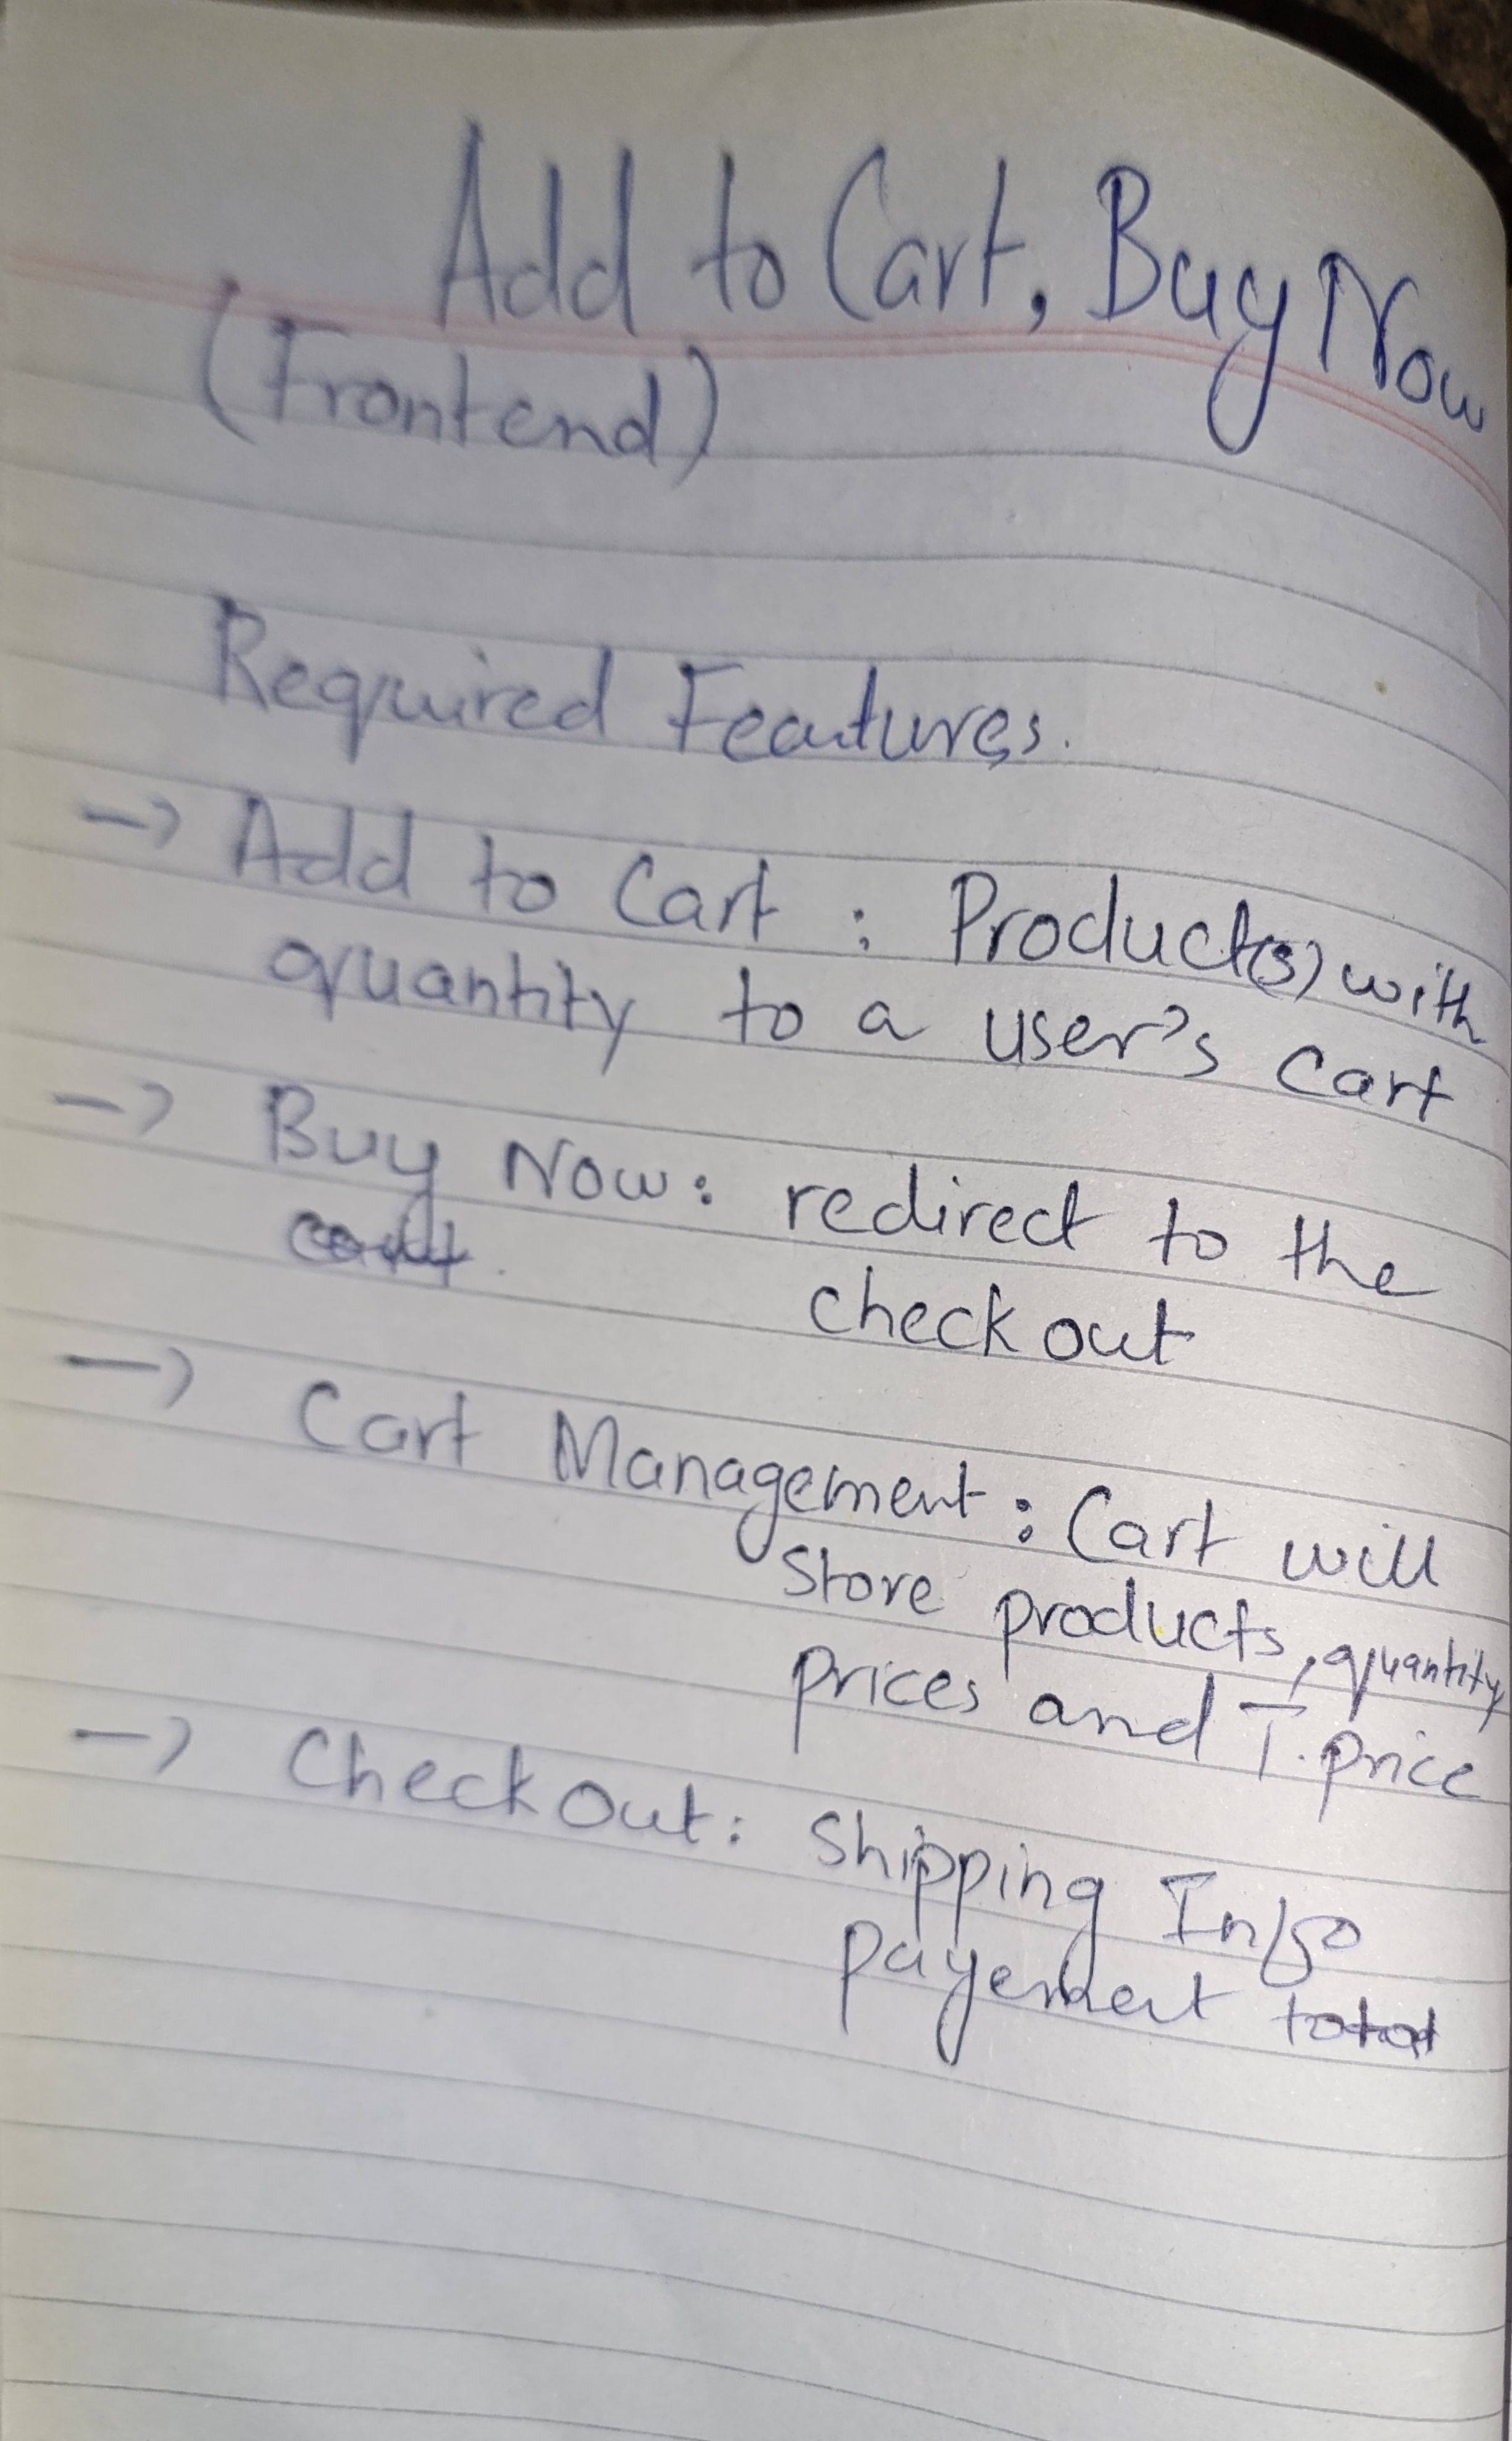 Add to Cart, Buy Now
(Frontend)
Required Features.
-> Add to Cart : Product(s) with
quantity to a user's cart
-> Buy Now: redirect to the
checkout
-> Cart Management : Cart will
store products, quantity,
prices and T. price
-> Checkout: Shipping Info
payement total